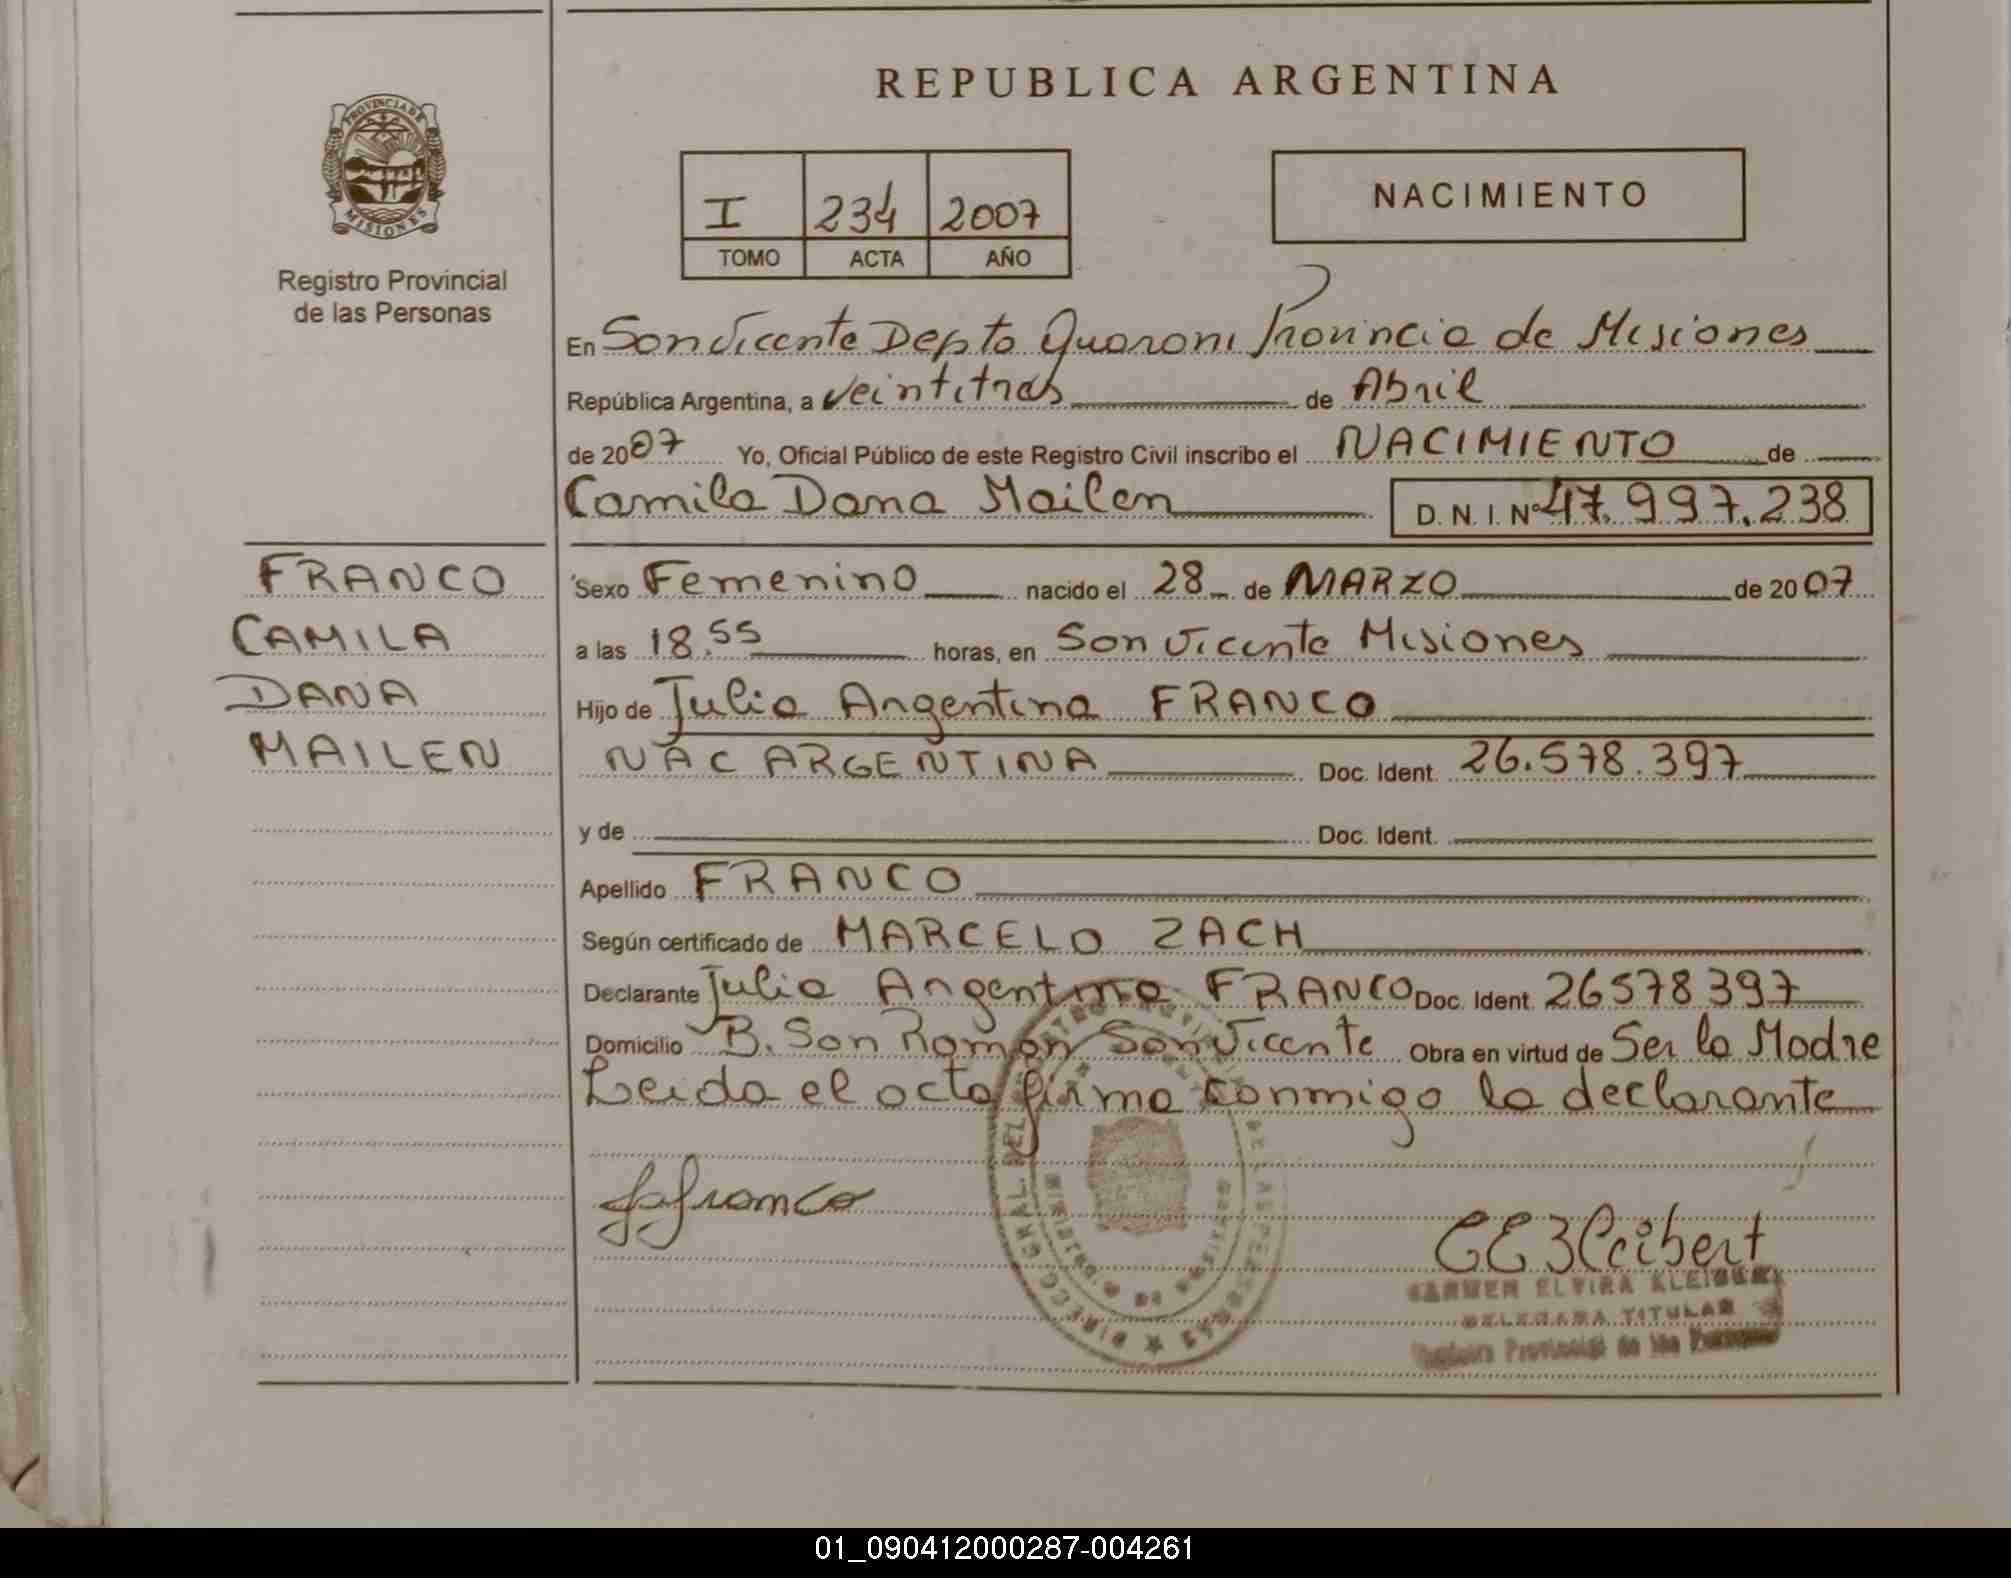 REPUBLICA ARGENTINA
PROVINCIA DE
MISIONES
Registro Provincial
de las Personas
I 234 2007
TOMO ACTA AÑO
NACIMIENTO
En San Vicente Depto Guarani Provincia de Misiones
República Argentina, a veintitres de Abril
de 2007 Yo, Oficial Público de este Registro Civil inscribo el NACIMIENTO de
Camila Dana Mailen D. N. I. Nº 47.997.238
FRANCO
CAMILA
DANA
MAILEN
Sexo Femenino nacido el 28 de MARZO de 2007
a las 18.55 horas, en San Vicente Misiones
Hijo de Julia Argentina FRANCO
NAC ARGENTINA Doc. Ident. 26.578.397
y de Doc. Ident.
Apellido FRANCO
Según certificado de MARCELO ZACH
Declarante Julia Argentina FRANCO Doc. Ident. 26578397
Domicilio B. San Ramon San Vicente Obra en virtud de Ser la Madre
Leida el acta firma conmigo la declarante
JaFranco
CEKleibert
CARMEN ELVIRA KLEIBERT
DELEGADA TITULAR
Provincial de las Personas
DIRECC. GRAL. DEL REGISTRO PROVINCIAL DE LAS PERSONAS
01_090412000287-004261